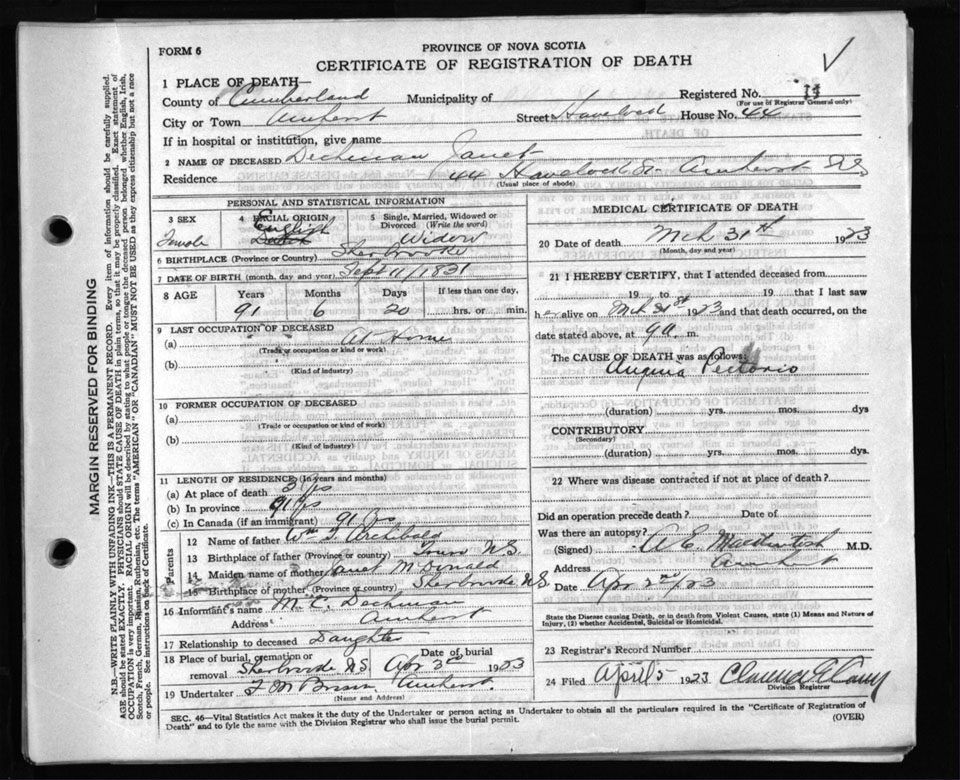 FORM 6
PROVINCE OF NOVA SCOTIA
CERTIFICATE OF REGISTRATION OF DEATH
1 PLACE OF DEATH—
County of Cumberland Municipality of Registered No.
(For use of Registrar General only)
City or Town Amherst Street Havelock House No. 44
If in hospital or institution, give name
2 NAME OF DECEASED Dechman Janet
Residence 44 Havelock St. Amherst N.S.
(Usual place of abode)
PERSONAL AND STATISTICAL INFORMATION
3 SEX
Female
4 RACIAL ORIGIN
English
5 Single, Married, Widowed or Divorced (Write the word)
Widow
6 BIRTHPLACE (Province or Country) Sherbrooke
7 DATE OF BIRTH (month, day and year) Sept 11/1831
8 AGE Years Months Days If less than one day,
91 6 20 hrs. or min.
9 LAST OCCUPATION OF DECEASED
(a) At Home
(Trade or occupation or kind or work)
(b)
(Kind of industry)
10 FORMER OCCUPATION OF DECEASED
(a)
(Trade or occupation or kind or work)
(b)
(Kind of industry)
11 LENGTH OF RESIDENCE (In years and months)
(a) At place of death yrs
(b) In province 91 yrs
(c) In Canada (if an immigrant) 91 yrs
Parents
12 Name of father Wm Archibald
13 Birthplace of father (Province or country) Truro N.S.
14 Maiden name of mother Janet McDonald
15 Birthplace of mother (Province or country) Sherbrooke N.S.
16 Informant's name M. C. Dechman
Address Amherst
17 Relationship to deceased Daughter
18 Place of burial, cremation or removal Sherbrooke N.S. Date of burial Apr 3rd 1923
19 Undertaker Amherst
(Name and Address)
MEDICAL CERTIFICATE OF DEATH
20 Date of death Mch 31st 1923
(Month, day and year)
21 I HEREBY CERTIFY, that I attended deceased from
19 to 19 that I last saw
her alive on Mch 31st 1923 and that death occurred, on the
date stated above, at 9 a. m.
The CAUSE OF DEATH was as follows:
Angina Pectoris
(duration) yrs. mos. dys
CONTRIBUTORY
(Secondary)
(duration) yrs. mos. dys.
22 Where was disease contracted if not at place of death?
Did an operation precede death? Date of
Was there an autopsy?
(Signed) A. E. Mackintosh M.D.
Address Amherst
Date Apr 2nd/23
State the Disease causing Death, or in death from Violent Causes, state (1) Means and Nature of
Injury, (2) whether Accidental, Suicidal or Homicidal.
23 Registrar's Record Number
24 Filed April 5 1923
Division Registrar
SEC. 46—Vital Statistics Act makes it the duty of the Undertaker or person acting as Undertaker to obtain all the particulars required in the "Certificate of Registration of
Death" and to fyle the same with the Division Registrar who shall issue the burial permit.
(OVER)
MARGIN RESERVED FOR BINDING
N.B.—WRITE PLAINLY WITH UNFADING INK—THIS IS A PERMANENT RECORD. Every item of information should be carefully supplied.
AGE should be stated EXACTLY. PHYSICIANS should STATE CAUSE OF DEATH in plain terms, so that it may be properly classified. Exact statement of
OCCUPATION is very important. RACIAL ORIGIN will be described by stating to what people or tongue the deceased person belonged, whether English, Irish,
Scotch, French, German, Russian, Ruthenian, etc. The terms "AMERICAN" OR "CANADIAN" MUST NOT BE USED as they express citizenship but not a race
or people. See instructions on back of Certificate.